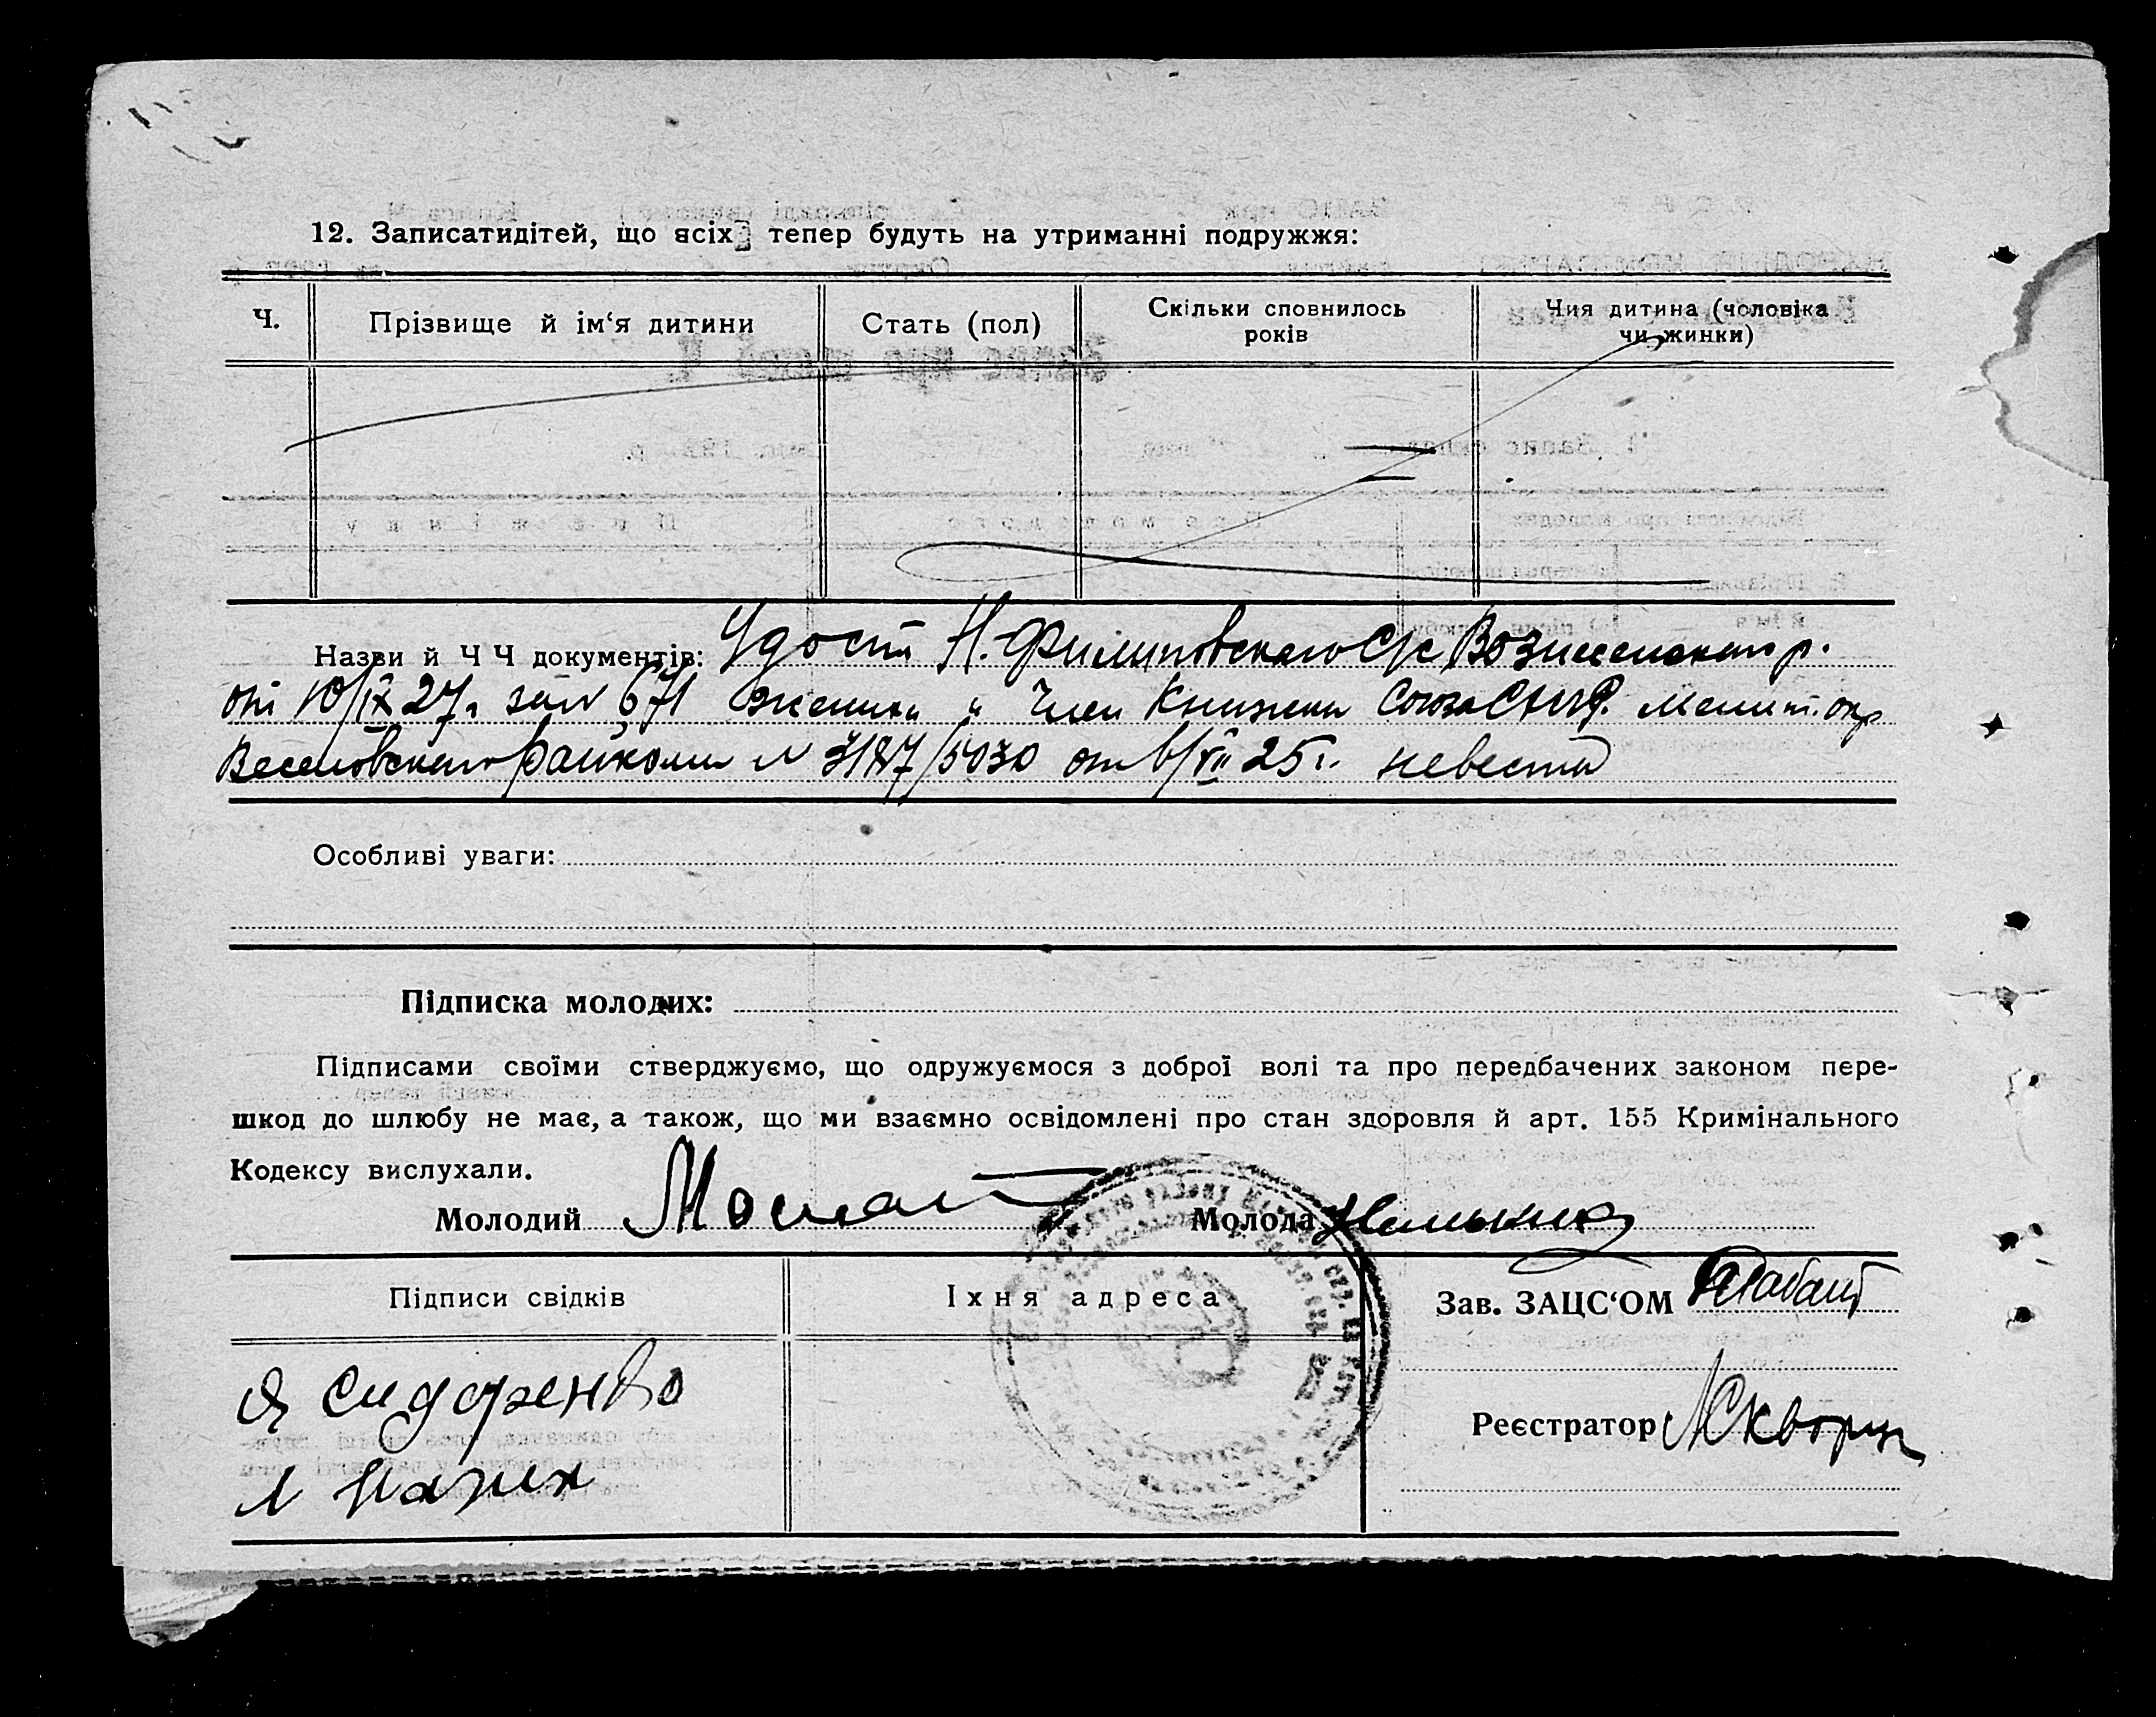 12. Записатидітей, що всіх тепер будуть на утриманні подружжя:
Ч.
Прізвище й ім‘я дитини
Стать (пол)
Скільки сповнилось
років
Чия дитина (чоловіка
чи жинки)
Назви й Ч Ч документів: Удост Н. Филиповского С/с Вознесенск р.
от 10/IX 27 г. за N 671 жениха и Член Книжки Союза Мелит. окр
Веселовского райкома N от VII 25 г. невеста
Особливі уваги:
Підписка молодих:
Підписами своїми стверджуємо, що одружуємося з доброї волі та про передбачених законом пере-
шкод до шлюбу не має, а також, що ми взаємно освідомлені про стан здоровля й арт. 155 Кримінального
Кодексу вислухали.
Молодий
Молода
Підписи свідків
Їхня адреса
Зав. ЗАЦС‘ОМ
Я Сидоренко
Реєстратор